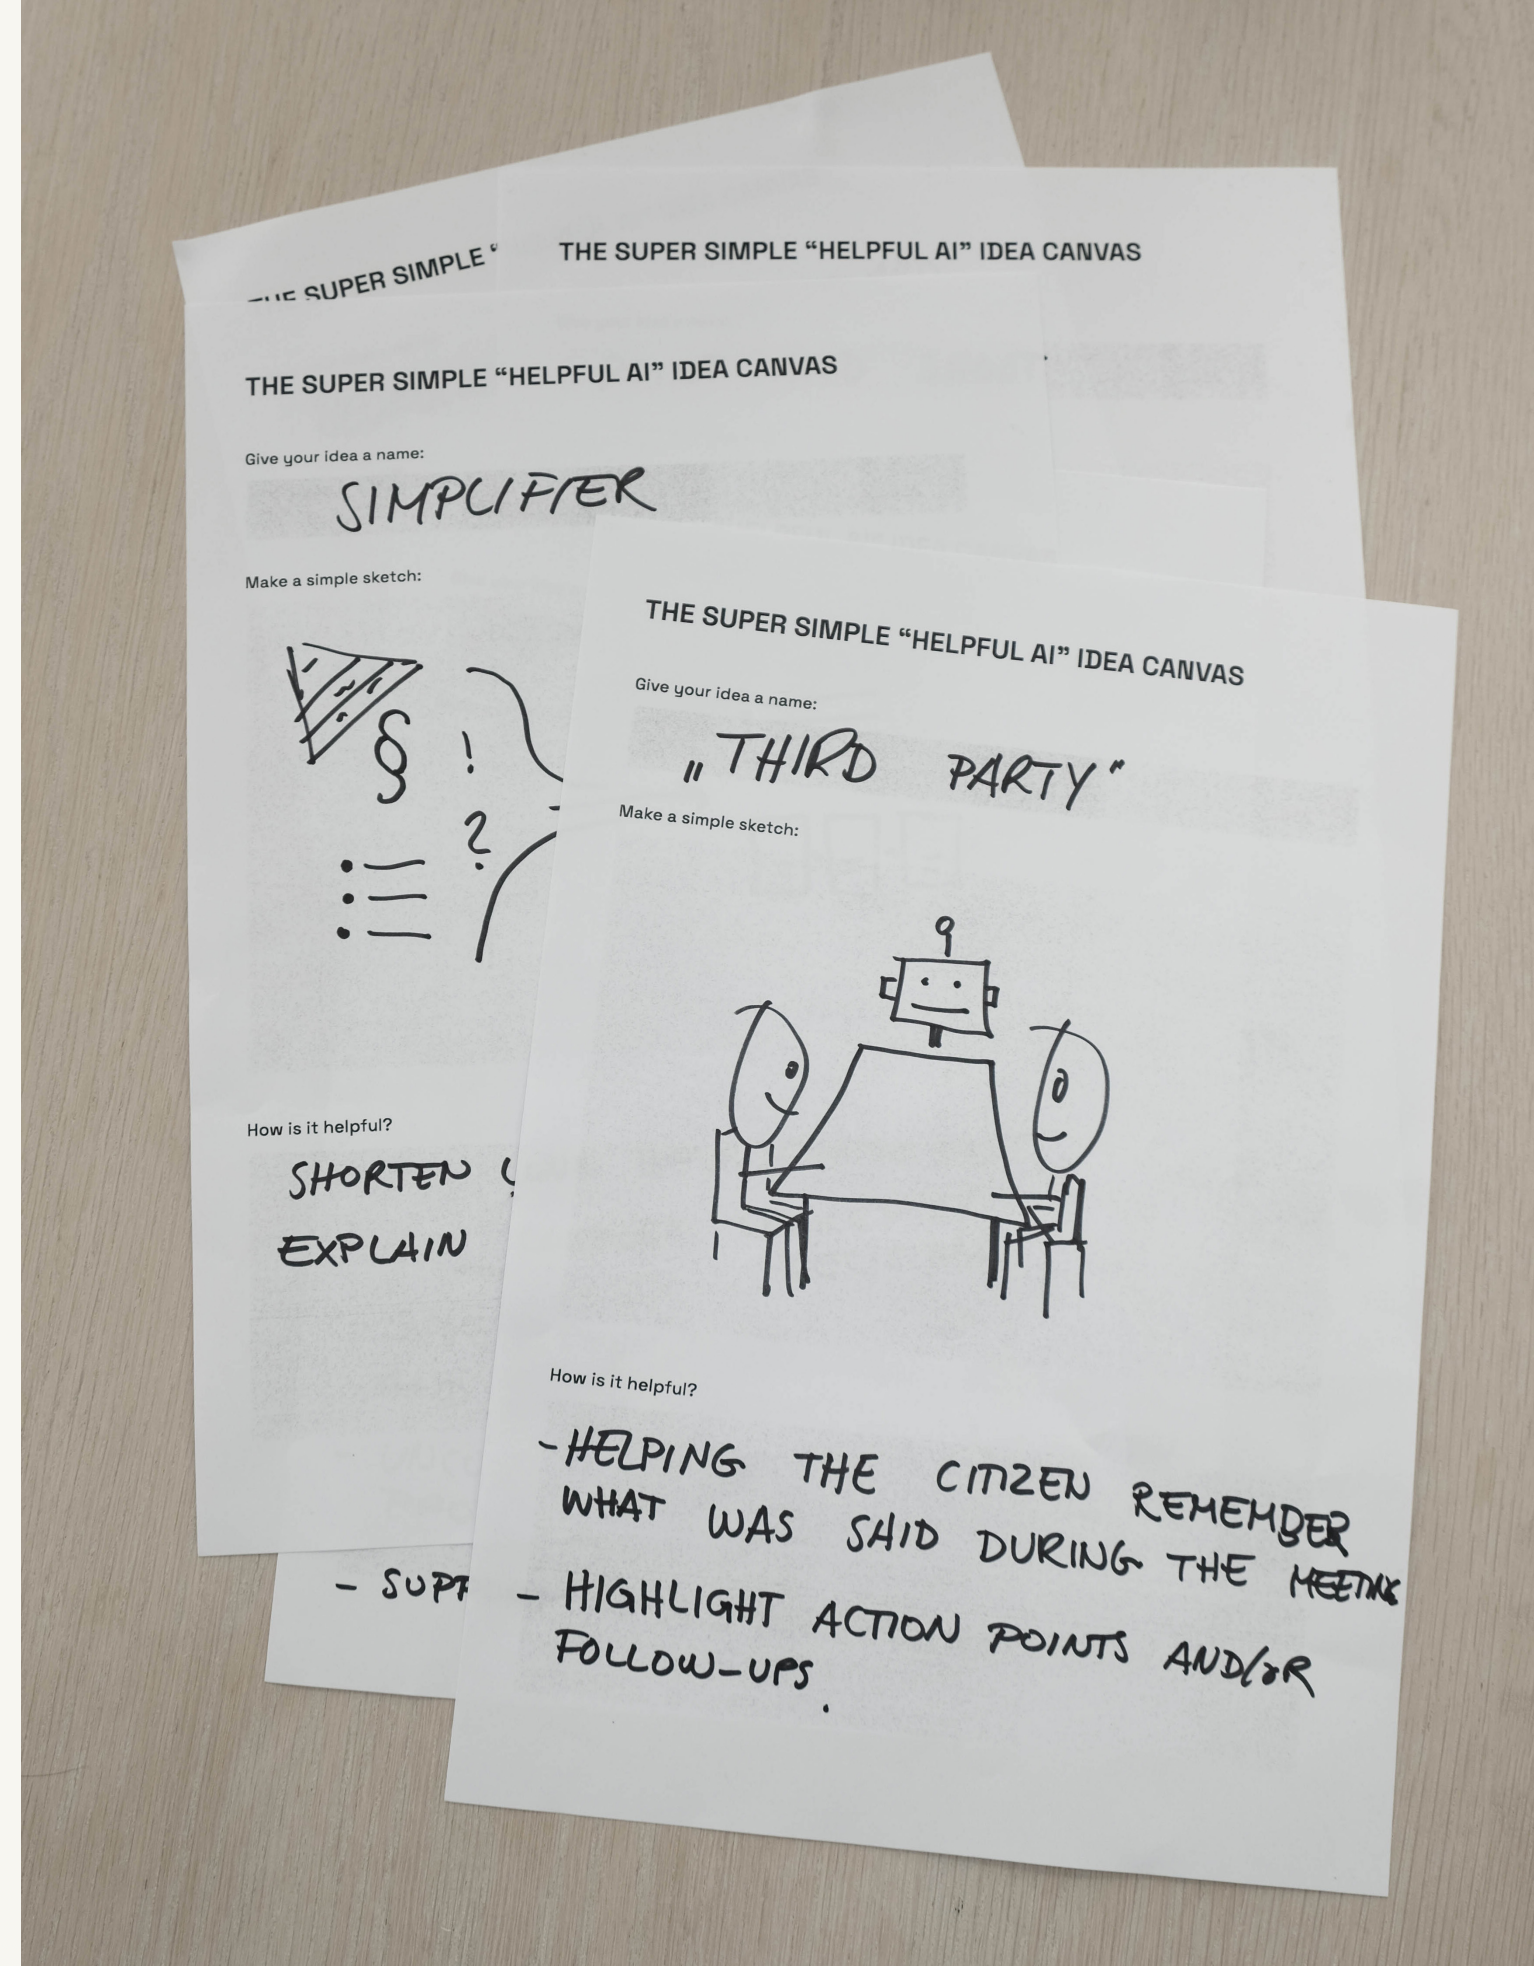 THE SUPER SIMPLE “
THE SUPER SIMPLE “HELPFUL AI” IDEA CANVAS
THE SUPER SIMPLE “HELPFUL AI” IDEA CANVAS
Give your idea a name:
SIMPLIFIER
Make a simple sketch:
§ !
?
How is it helpful?
SHORTEN
EXPLAIN
- SUPP
THE SUPER SIMPLE “HELPFUL AI” IDEA CANVAS
Give your idea a name:
„THIRD PARTY“
Make a simple sketch:
How is it helpful?
- HELPING THE CITIZEN REMEMBER
WHAT WAS SAID DURING THE MEETING
- HIGHLIGHT ACTION POINTS AND/OR
FOLLOW-UPS.